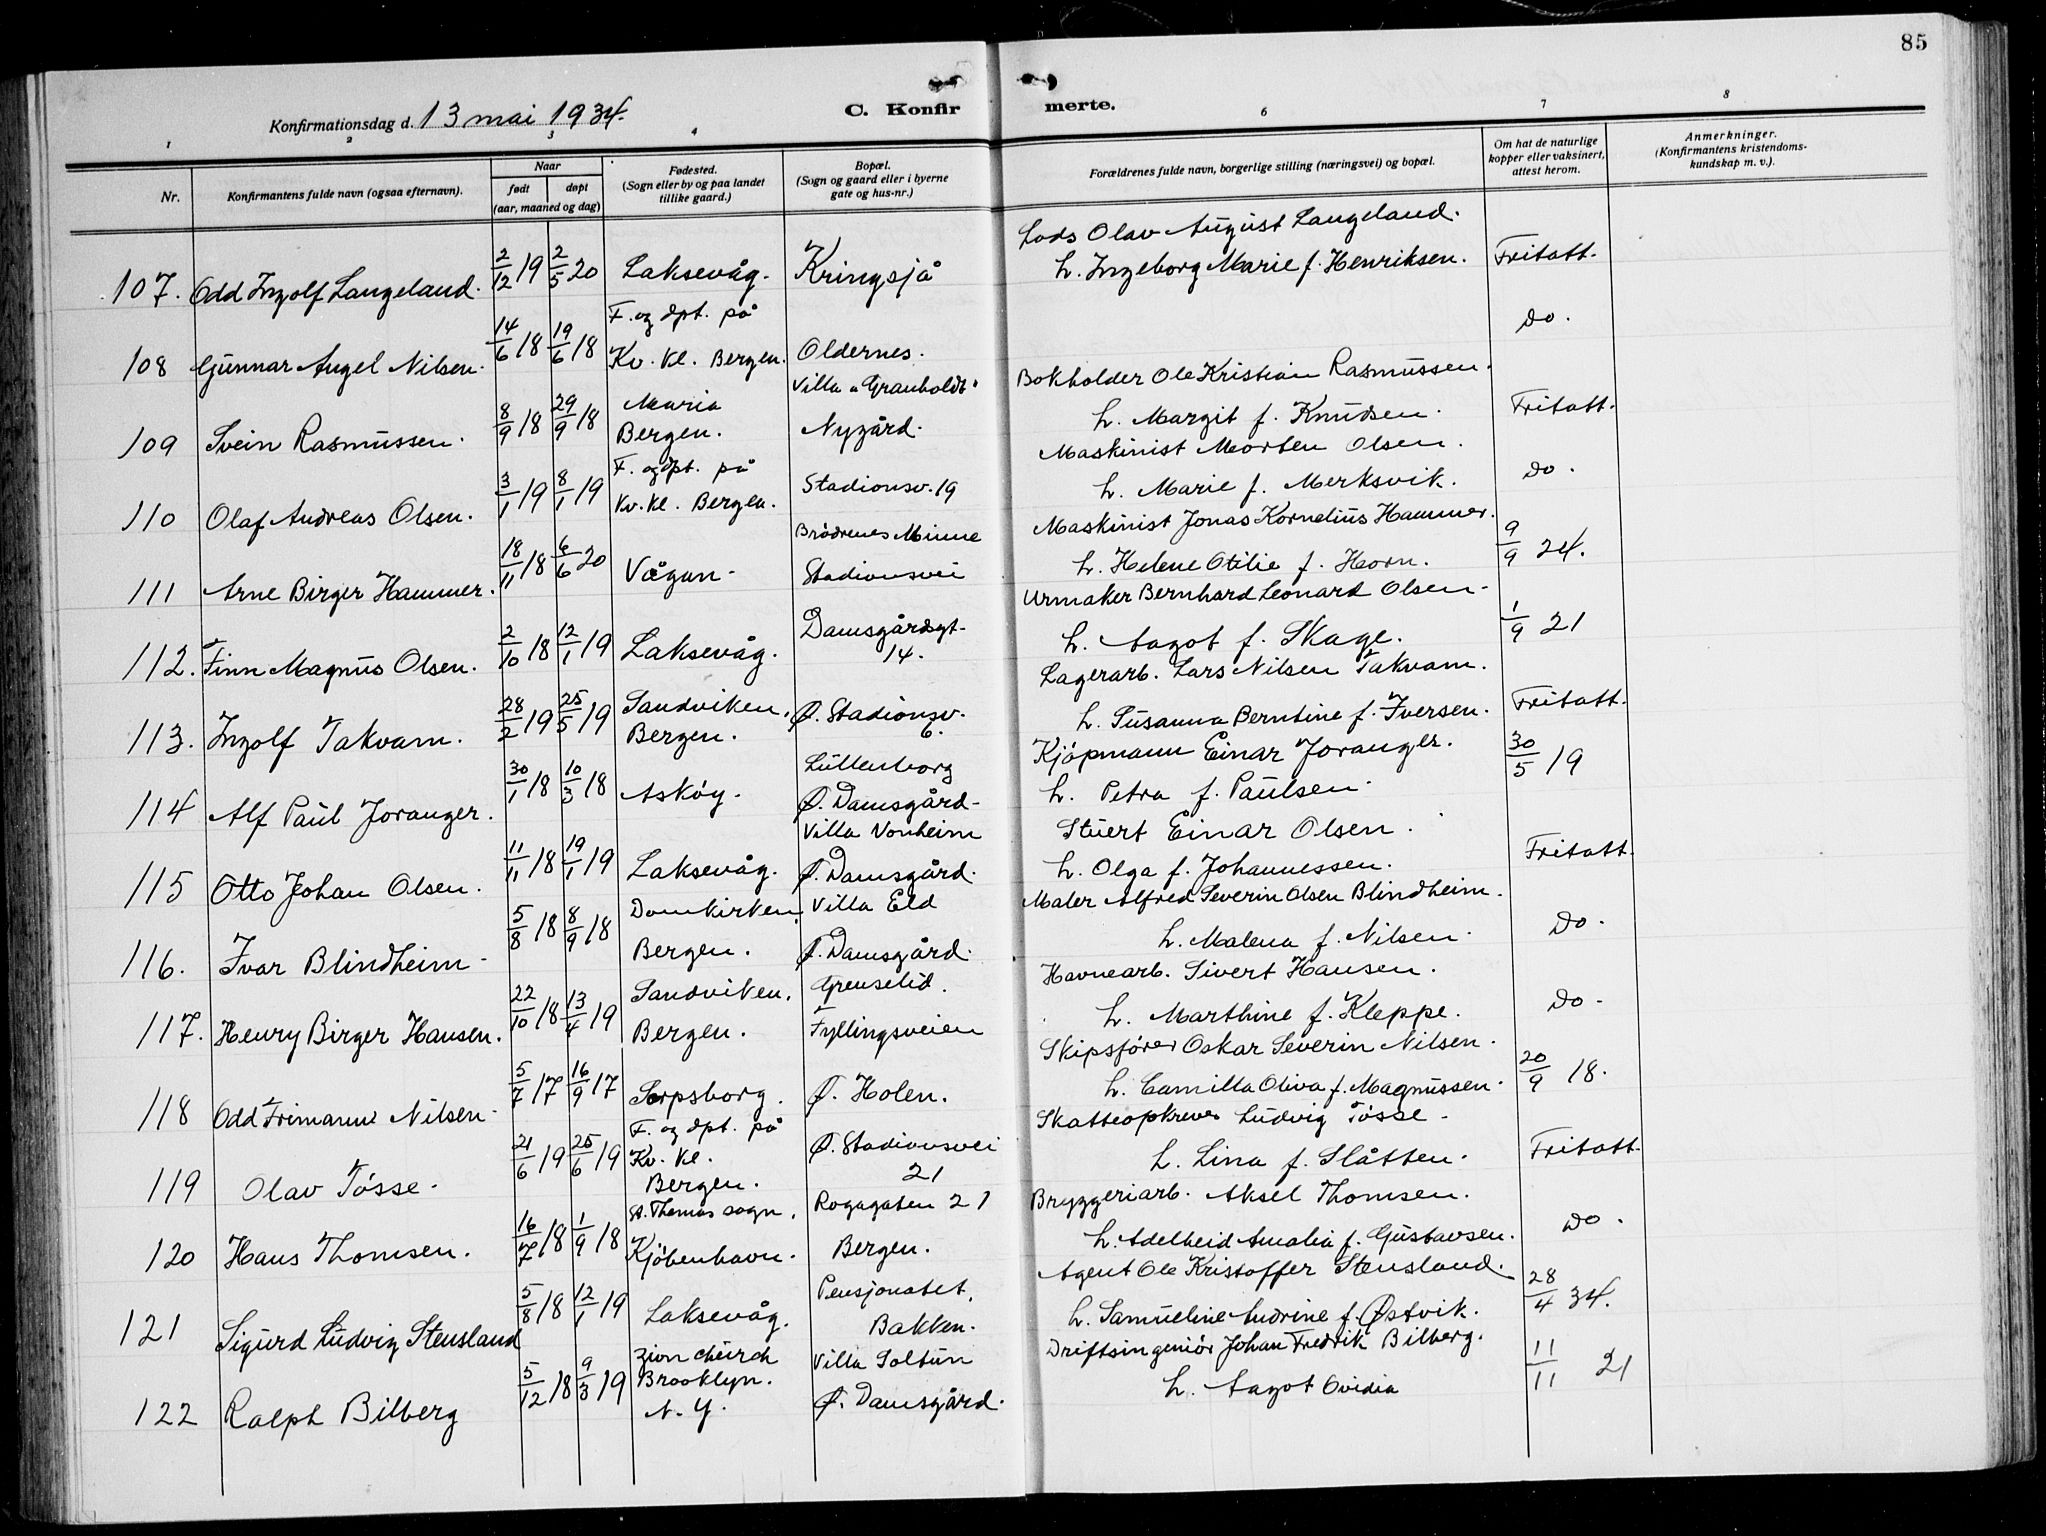 85
Konfirmationsdag d. 13 mai 1934.
C. Konfirmerte.
1 2 3 4 6 7 8
Nr.
Konfirmantens fulde navn (ogsaa efternavn).
Naar
født døpt
(aar, maaned og dag)
Fødested.
(Sogn eller by og paa landet
tillike gaard.)
Bopæl.
(Sogn og gaard eller i byerne
gate og hus-nr.)
Forældrenes fulde navn, borgerlige stilling (næringsvei) og bopæl.
Om hat de naturlige
kopper eller vaksinert,
attest herom.
Anmerkninger.
(Konfirmantens kristendoms-
kundskap m. v.).
Lods Olav August Langeland.
107. Odd Ingolf Langeland. 2/12 19 2/5 20 Laksevåg. Kringsjå h. Ingeborg Marie f. Henriksen. Fritatt.
F. og dpt. på
108 Gunnar Angel Nilsen. 14/6 18 19/6 18 Kv. Kl. Bergen. Oldernes. Do.
Villa "Granholdt" Bokholder Ole Kristian Rasmussen.
109 Svein Rasmussen. 8/9 18 29/9 18 Maria Bergen. Nygård. h. Margit f. Knudsen. Fritatt.
F. og dpt. på Maskinist Morten Olsen.
110 Olaf Andreas Olsen. 3/1 19 8/1 19 Kv. Kl. Bergen. Stadionsv. 19 h. Marie f. Merksvik. Do.
Brødrenes Minne Maskinist Jonas Kornelius Hammer.
111 Arne Birger Hammer. 18/11 18 6/6 20 Vågan. Stadionsvei h. Helene Otilie f. Horn. 9/9 24.
Urmaker Bernhard Leonard Olsen.
112. Finn Magnus Olsen. 2/10 18 12/1 19 Laksevåg. Damsgårdsgt. 14. h. Aagot f. Skage. 1/9 21
Lagerarb. Lars Nilsen Takvam.
113. Ingolf Takvam. 28/2 19 25/5 19 Sandviken, Bergen. Ø. Stadionsv. 6. h. Susanna Berntine f. Iversen. Fritatt.
Luttenborg Kjøpmann Einar Joranger.
114 Alf Paul Joranger. 30/1 18 10/3 18 Askøy. Ø. Damsgård. h. Petra f. Paulsen. 30/5 19
Villa Vonheim Stuert Einar Olsen.
115 Otto Johan Olsen. 11/11 18 19/1 19 Laksevåg. Ø. Damsgård. h. Olga f. Johannessen. Fritatt.
Domkirken, Villa Eld Maler Alfred Severin Olsen Blindheim.
116. Ivar Blindheim. 5/8 18 8/9 18 Bergen. Ø. Damsgård. h. Malena f. Nilsen. Do.
Sandviken, Grenselid. Havnearb. Sivert Hansen.
117. Henry Birger Hansen. 22/10 18 13/4 19 Bergen. Fyllingsveien h. Marthine f. Kleppe. Do.
Skipsfører Oskar Severin Nilsen.
118 Odd Frimann Nilsen. 5/7 17 16/9 17 Sarpsborg. Ø. Holen. h. Camilla Oliva f. Magnussen. 20/9 18.
F. og dpt. på Skatteopkrever Ludvig Tøsse.
119 Olav Tøsse. 21/6 19 25/6 19 Kv. Kl. Bergen. Ø. Stadionsvei 21 h. Lina f. Slåtten. Fritatt.
St. Thomas sogn, Rogagaten 21 Bryggeriarb. Aksel Thomsen.
120 Hans Thomsen. 16/7 18 1/9 18 Kjøbenhavn. Bergen. h. Adelheid Amalia f. Gustavsen. Do.
Pensjonatet, Agent Ole Kristoffer Stensland.
121 Sigurd Ludvig Stensland 5/8 18 12/1 19 Laksevåg. Bakken. h. Samueline Andrine f. Østvik. 28/4 34.
Zion church Villa Soltun Driftsingeniør Johan Fredrik Bilberg.
122 Ralph Bilberg 5/12 18 9/3 19 Brooklyn. N. Y. Ø. Damsgård. h. Aagot Ovidia 11/11 21